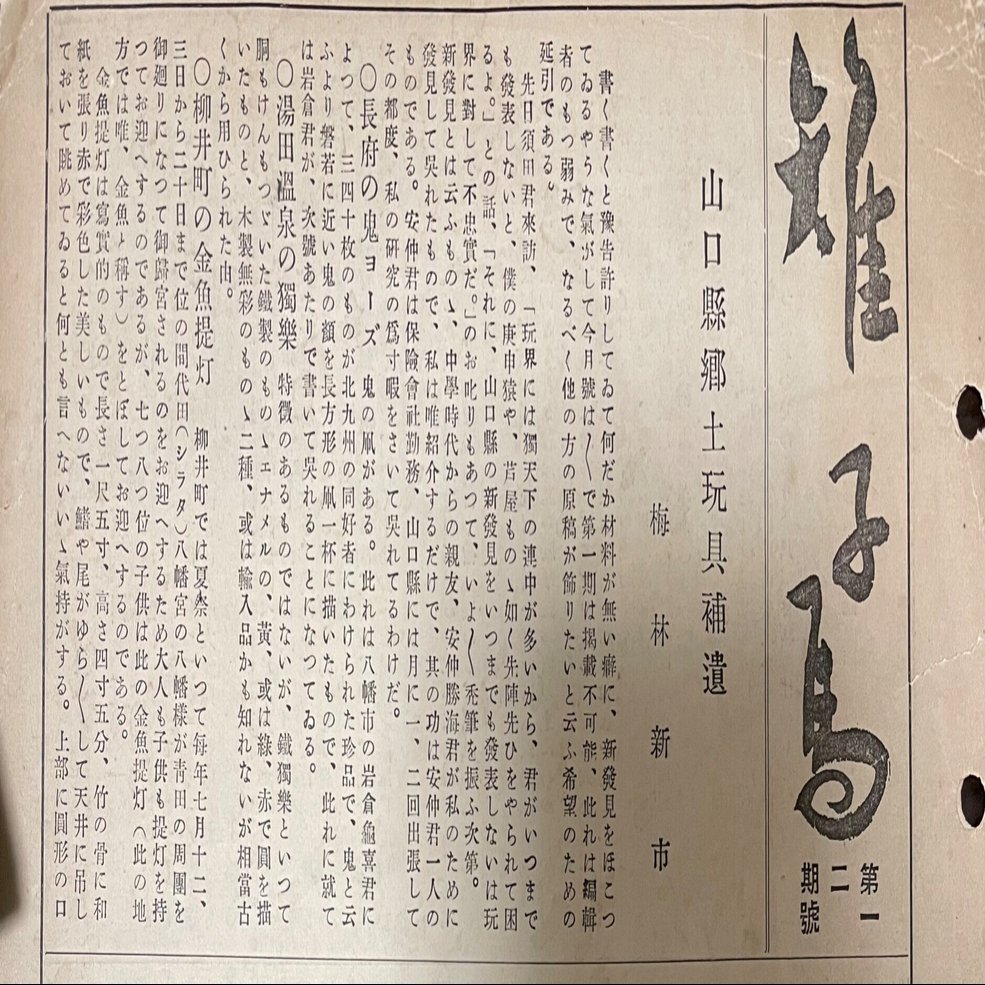 雉子馬
第一
二
期號
山口縣鄕土玩具補遺
梅林新市
書く書くと豫吿許りしてゐて何だか材料が無い癖に、新發見をほこつ
てゐるやうな氣がして今月號は〳〵で第一期は揭載不可能、此れは編輯
者のもつ弱みで、なるべく他の方の原稿が飾りたいと云ふ希望のための
延引である。
先日須田君來訪、「玩界には獨天下の連中が多いから、君がいつまで
も發表しないと、僕の庚申猿や、芦屋ものゝ如く先陣先ひをやられて困
るよ。」との話、「それに、山口縣の新發見をいつまでも發表しないは玩
界に對して不忠實だ。」のお叱りもあつて、いよ〳〵禿筆を振ふ次第。
新發見とは云ふものゝ、中學時代からの親友、安仲勝海君が私のために
發見して吳れたもので、私は唯紹介するだけで、其の功は安仲君一人の
ものである。安仲君は保險會社勤務、山口縣には月に一、二回出張して
その都度、私の硏究の爲寸暇をさいて吳れてるわけだ。
〇長府の鬼ョーズ　鬼の凧がある。此れは八幡市の岩倉龜喜君に
よつて、三四十枚のものが北九州の同好者にわけられた珍品で、鬼と云
ふより磐若に近い鬼の額を長方形の凧一杯に描いたもので、此れに就て
は岩倉君が、次號あたりで書いて吳れることになつてゐる。
〇湯田溫泉の獨樂　特徵のあるものではないが、鐵獨樂といつて
胴もけんもつゞいた鐵製のものゝエナメルの、黃、或は綠、赤で圓を描
いたものと、木製無彩のものゝ二種、或は輸入品かも知れないが相當古
くから用ひられた由。
〇柳井町の金魚提灯　柳井町では夏祭といつて每年七月十二、
三日から二十日まで位の間代田(シラタ)八幡宮の八幡樣が靑田の周圍を
御廻りになつて御歸宮されるのをお迎へするため大人も子供も提灯を持
つてお迎へするのであるが、七つ八つ位の子供は此の金魚提灯(此の地
方では唯、金魚と稱す)をとぼしてお迎へするのである。
金魚提灯は寫實的のもので長さ一尺五寸、高さ四寸五分、竹の骨に和
紙を張り赤で彩色した美しいもので、鰭や尾がゆら〳〵して天井に吊し
ておいて眺めてゐると何とも言へないいゝ氣持がする。上部に圓形の口